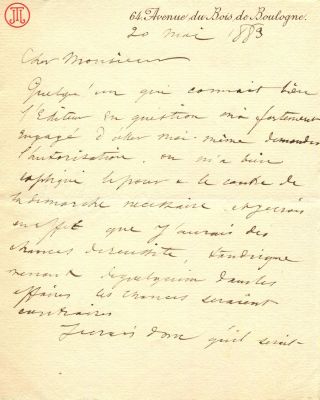 64, Avenue du Bois de Boulogne.
20 mai 1883
Cher Monsieur
Quelqu'un qui connait bien
l'Editeur en question m'a fortement
engagé d'aller moi-même demander
l'autorisation. on m'a bien
expliqué le pour & le contre de
la démarche necessaire et je crois
en effet que j'aurais des
chances de réussite, tandis que
venant de quelqu'un dans les
affaires les chances seraient
contraires
Je crois donc qu'il serait